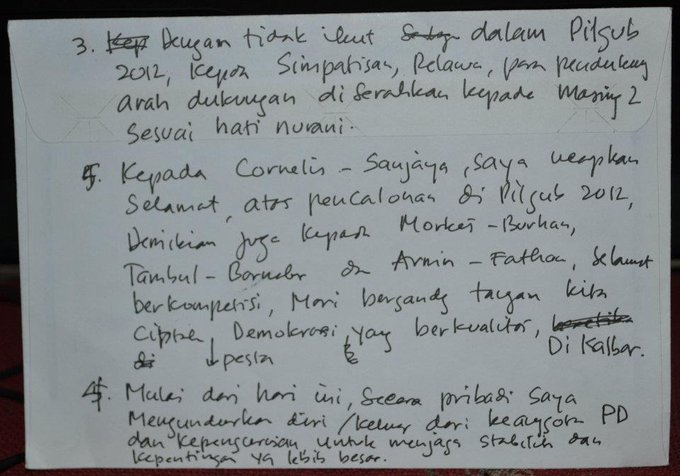 3. Dengan tidak ikut dalam Pilgub
2012, kepada Simpatisan, Relawan, para pendukung
arah dukungan di serahkan kepada masing2
sesuai hati nurani.
5. Kepada Cornelis - Sanjaya, saya ucapkan
Selamat, atas pencalonan di Pilgub 2012,
Demikian juga kepada Morkes - Burhan,
Tambul - Barnabas dan Armin - Fathan, Selamat
berkompetisi, Mari bergandeng tangan kita
Ciptakan pesta Demokrasi, yang berkualitas,
Di Kalbar.
4. Mulai dari hari ini, secara pribadi saya
Mengundurkan diri / keluar dari keanggotaan PD
dan kepengurusan untuk menjaga stabilitas dan
kepentingan yg lebih besar.